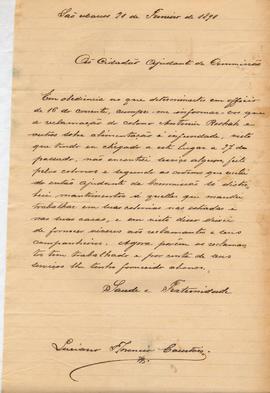 São Marcos 21 de Janeiro de 1891
Ao Cidadão Ajudante da Commissão
Em obediencia ao que determinastes em officio
de 16 do corrente, cumpre-me informar-vos que
a reclamação do colono Antonio
outros sobre alimentação é infundada, visto
que tendo eu chegado a este lugar a 27 do
passado, não encontrei serviço algum feito
pelos colonos e segundo as ordens que recebi
do então Ajudante da Commissão
dei mantimentos a quelles que mandei
trabalhar em suas colonias nas estradas e
nas suas casas, e em visto disso deixei
de fornecer viveres aos reclamantes e seus
companheiros. Agora porém os reclaman
tes tem trabalhado e por conta de seus
serviços lhe tenho fornecido abonos.
Saude e Fraternidade
Luciano